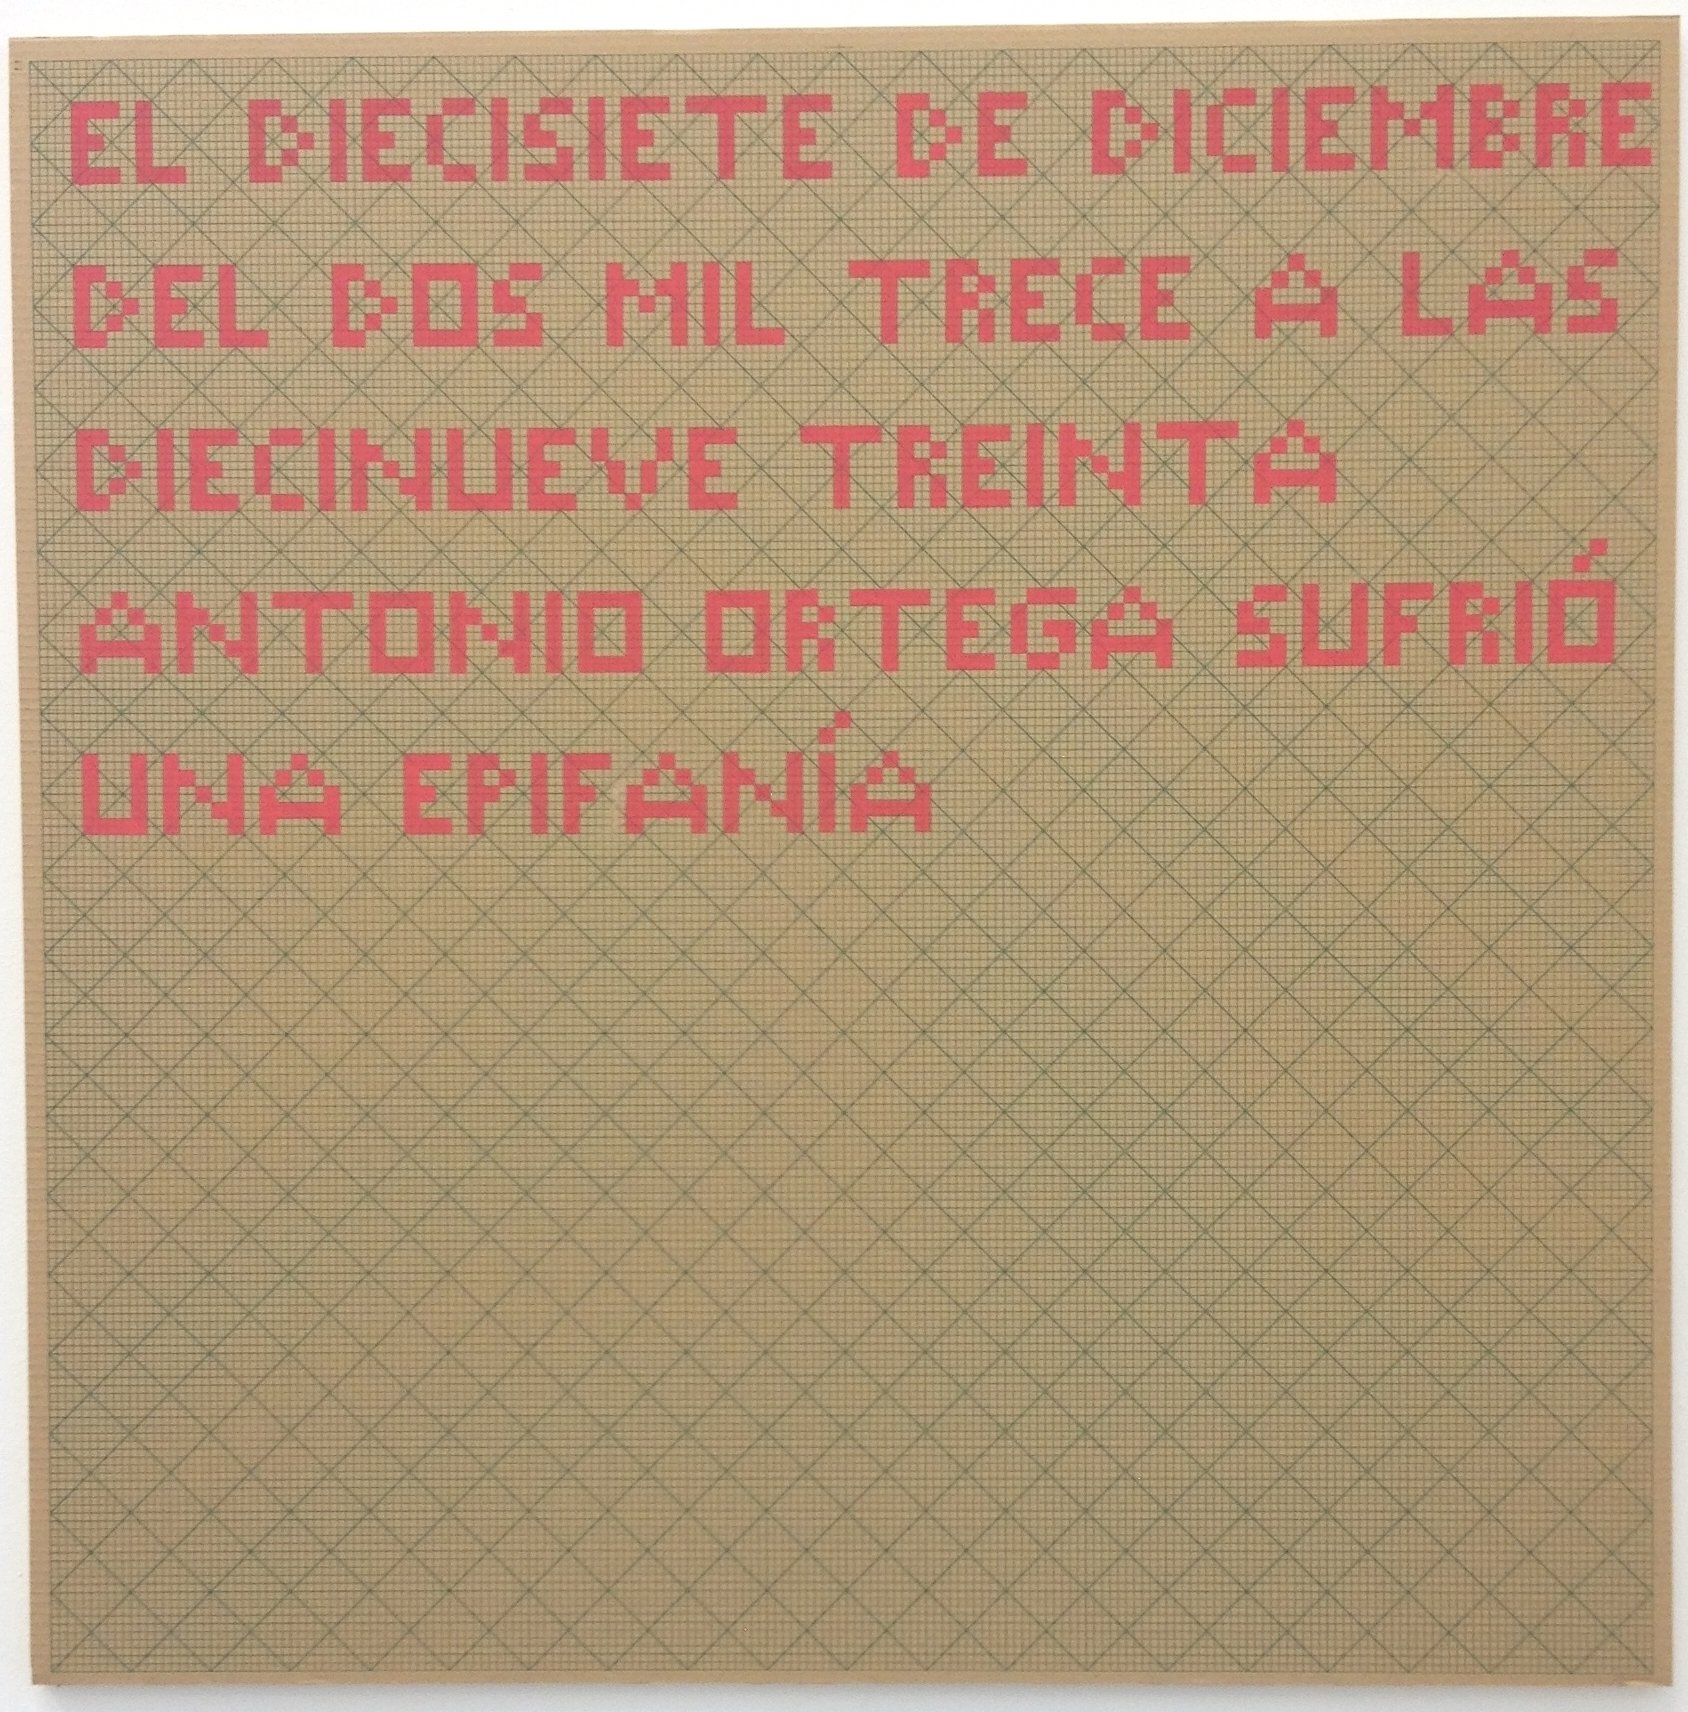 EL DIECISIETE DE DICIEMBRE
DEL DOS MIL TRECE A LAS
DIECINUEVE TREINTA
ANTONIO ORTEGA SUFRIÓ
UNA EPIFANÍA